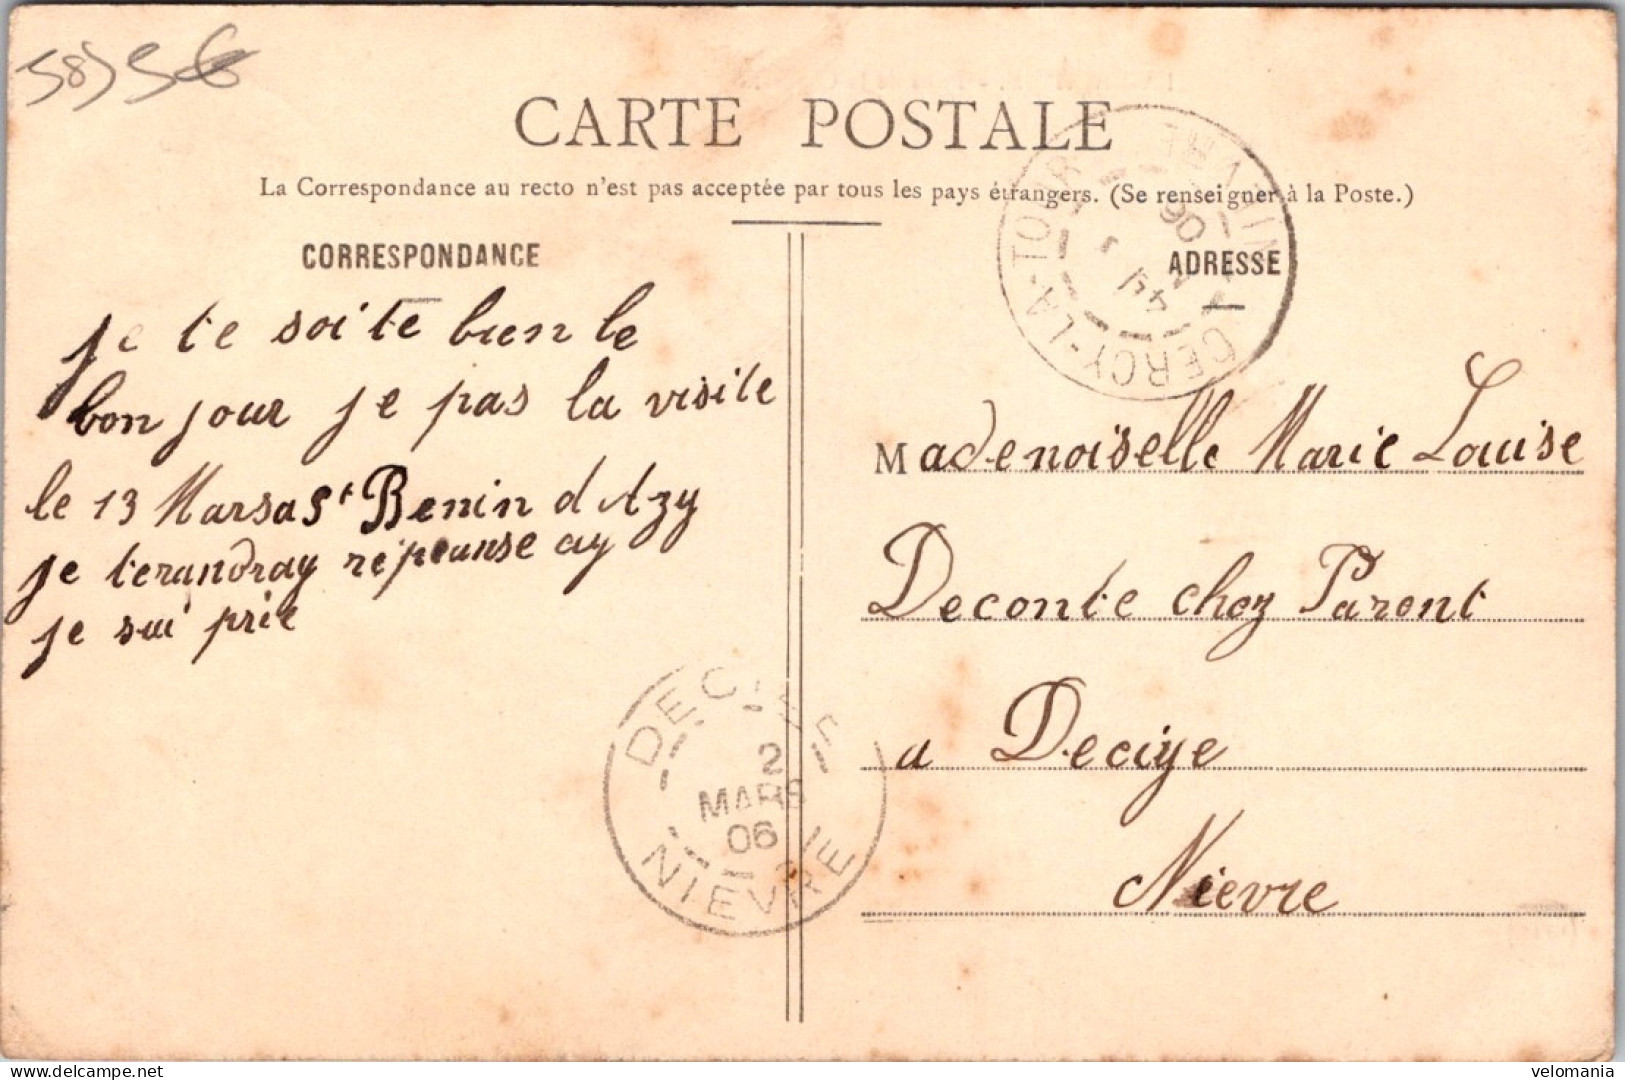 58) 5€
CARTE POSTALE
La Correspondance au recto n'est pas acceptée par tous les pays étrangers. (Se renseigner à la Poste.)
CORRESPONDANCE
je te soite bien le
bonjour je pas la visite
le 13 Mars a St Benin d Azy
je terandray repeunse ay
je sui prie
ADRESSE
Mademoiselle Marie Louise
Deconte chez Parent
a Decize
Nievre
CERCY-LA-TOUR NIEVRE
06
DECIZE
2
MARS
06
NIEVRE
velomania